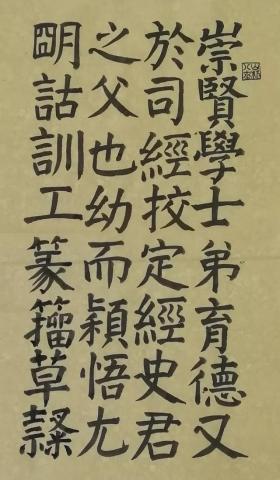 崇賢學士弟育德又
於司經挍定經史君
之父也幼而穎悟尤
明詁訓工篆籀草隸